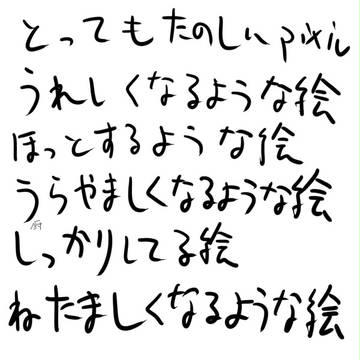 とってもたのしいpixiv
うれしくなるような絵
ほっとするような絵
うらやましくなるような絵
しっかりしてる絵
ねたましくなるような絵